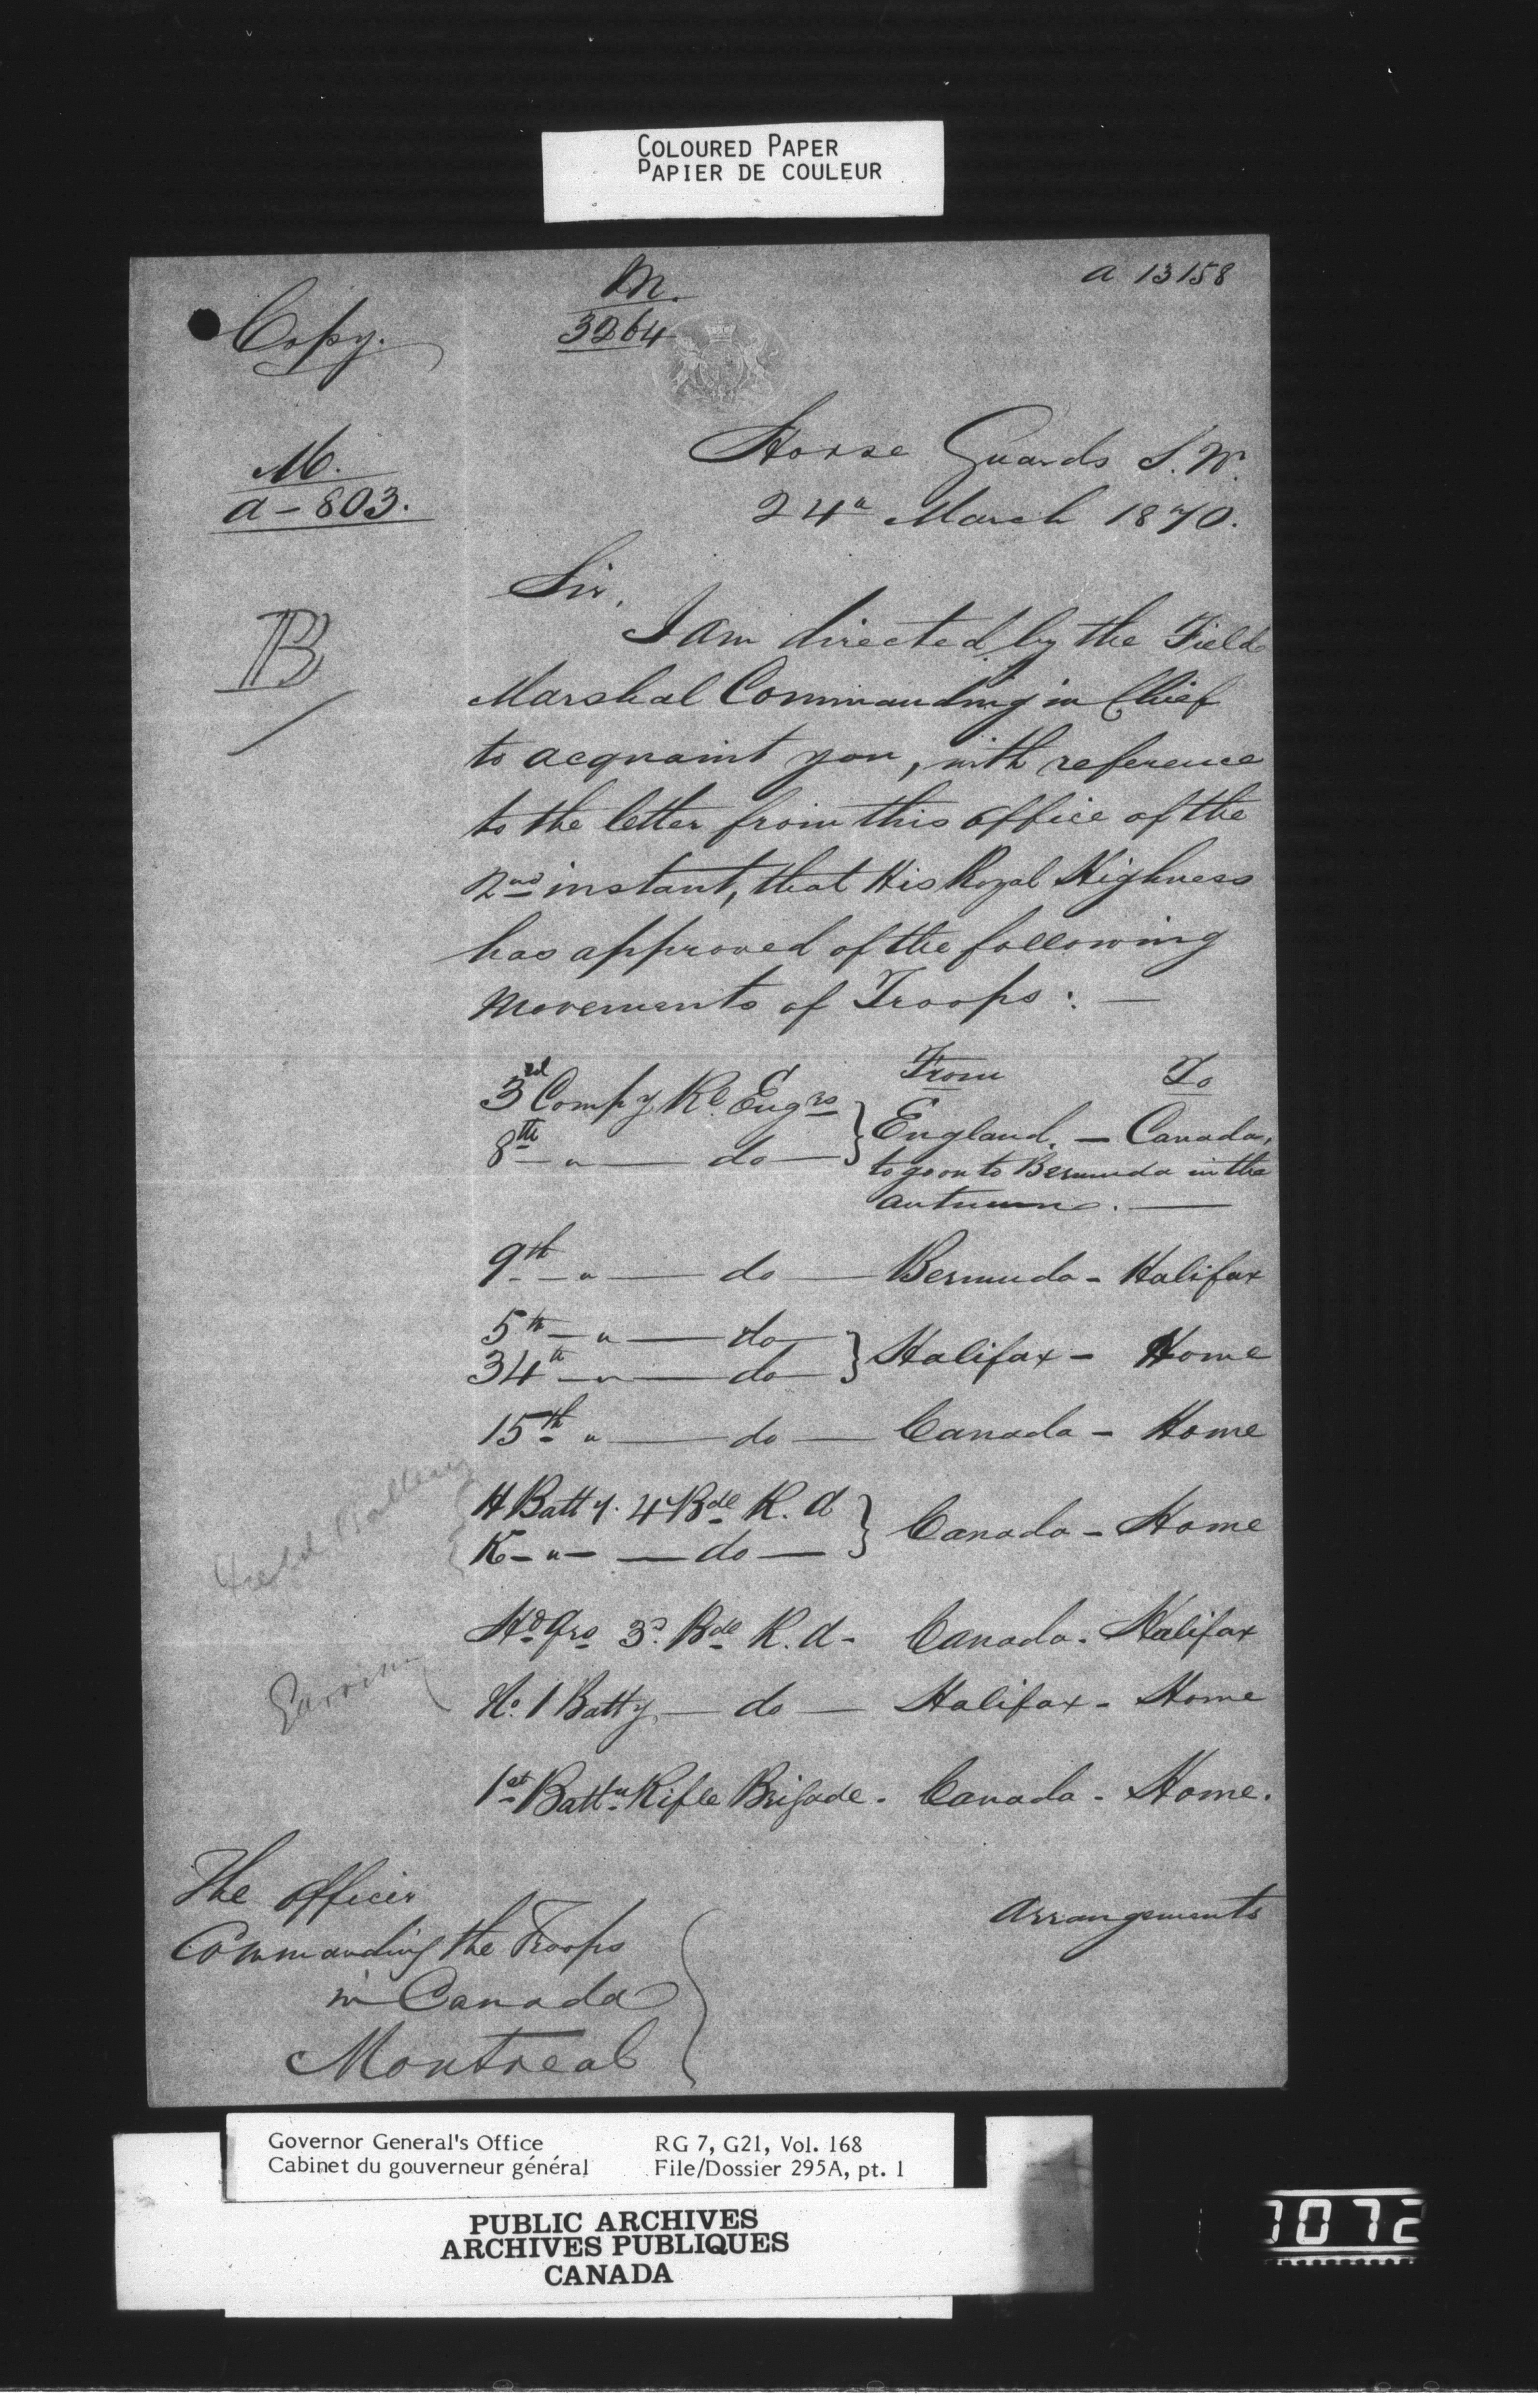 COLOURED PAPER
PAPIER DE COULEUR
M.
3264
a 13158
Copy.
M.
a - 803.
Horse Guards S.W.
24" March 1870.
B
Sir,
I am directed by the Field
Marshal Commanding in Chief
to acquaint you, with reference
to the letter from this office of the
2nd instant, that His Royal Highness
has approved of the following
movements of Troops: —
From To
3rd Compy Rl. Engrs } England. — Canada,
8th — " — do — } to go on to Bermuda in the
autumn. —
9th — " — do — Bermuda - Halifax
5th — " — do — } Halifax - Home
34th — " — do — }
15th " — do — Canada - Home
Field Battery
H Batty. 4 Bde R. A } Canada - Home
K - " - — do — }
Hd Qrs 3d. Bde R. A - Canada. Halifax
Garrison
No. 1 Batty, — do — Halifax - Home
1st Battn Rifle Brigade. Canada - Home.
The Officer
Commanding the Troops
in Canada
Montreal
arrangements
Governor General's Office RG 7, G21, Vol. 168
Cabinet du gouverneur général File/Dossier 295A, pt. 1
PUBLIC ARCHIVES
ARCHIVES PUBLIQUES
CANADA
1072